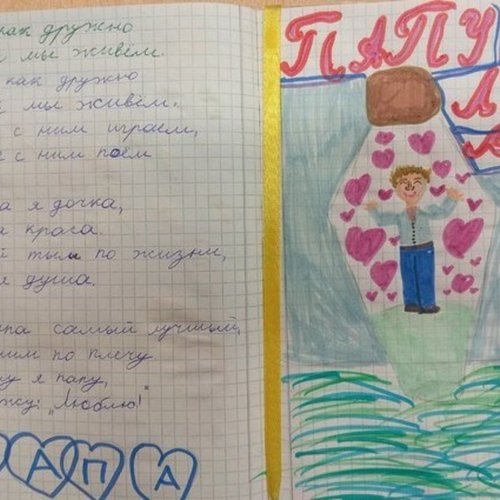 как дружно
мы живём.
как дружно
мы живём,
с ним играем,
с ним поём
а я дочка,
а краса.
й тыл по жизни,
я душа.
па самый лучший,
ним по плечу.
у я папу,
жу: „Люблю!"
А П А
ПАПУ
Л
Я